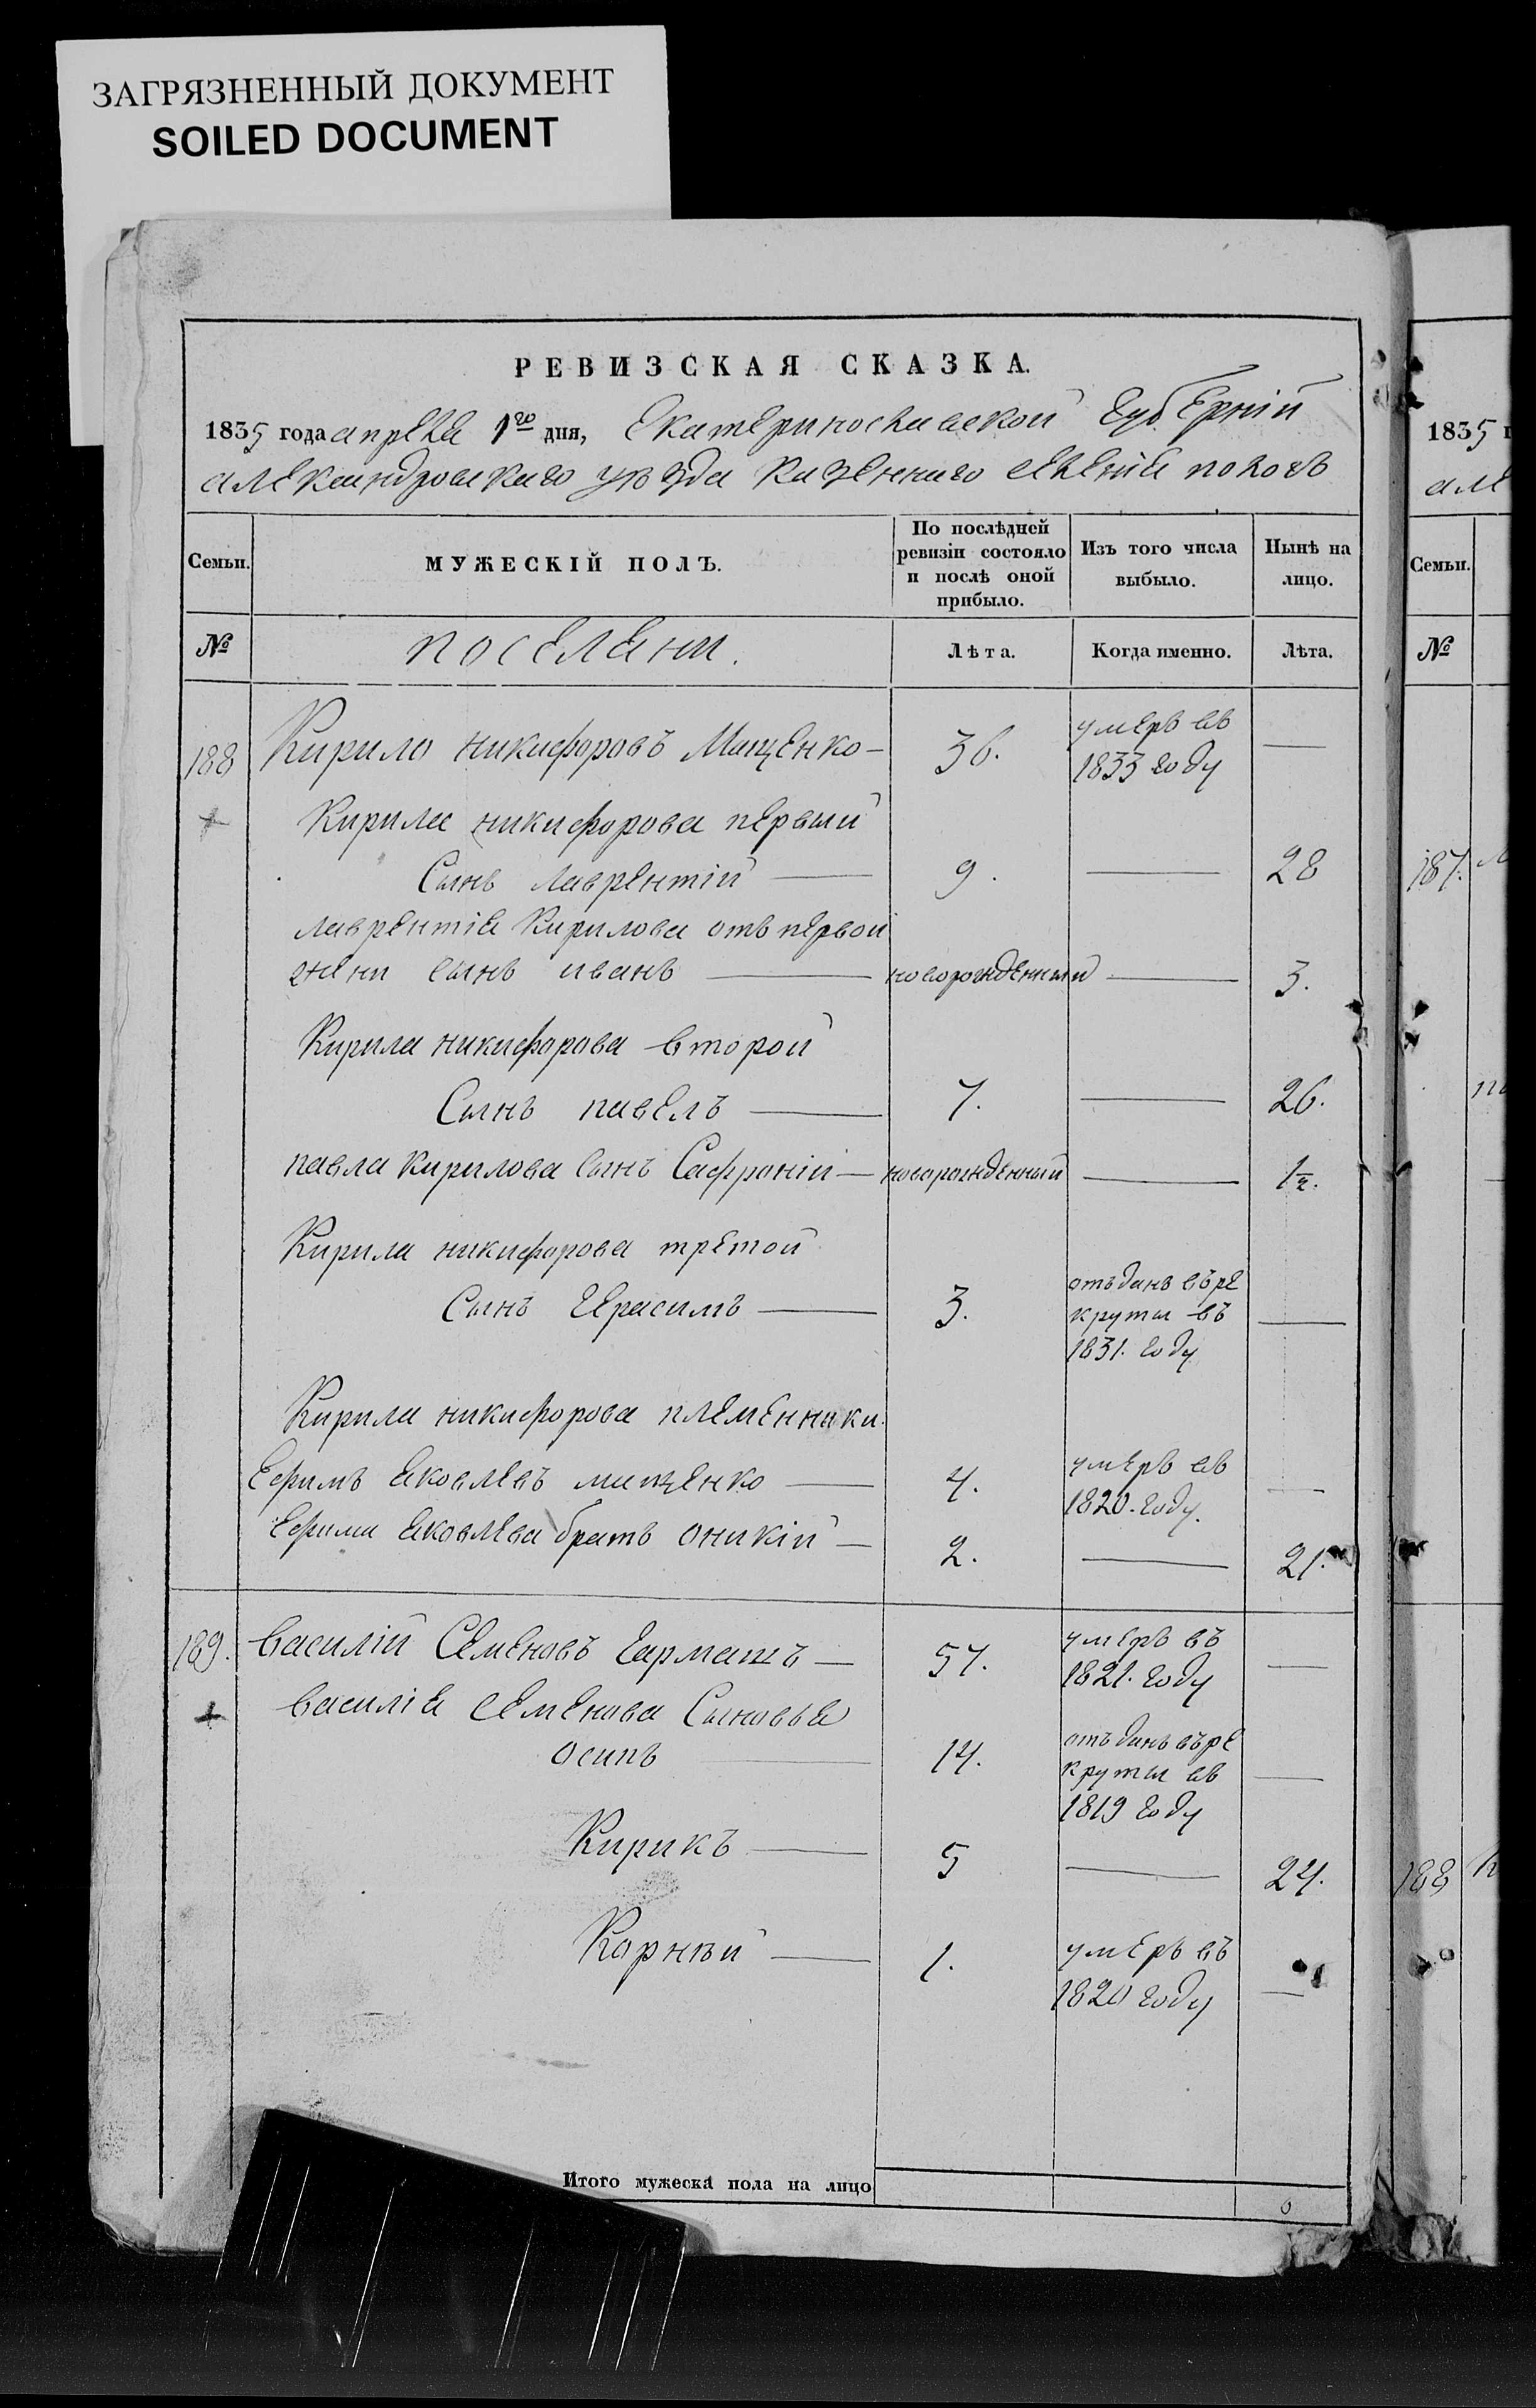 ЗАГРЯЗНЕННЫЙ ДОКУМЕНТ
SOILED DOCUMENT
РЕВИЗСКАЯ СКАЗКА.
1835 года апреля 1го дня, Екатеринославской Губерній
александровскаго уѣзда казеннаго селенія пологъ
Семьи. МУЖЕСКІЙ ПОЛЪ. По послѣдней ревизіи состояло и послѣ оной прибыло. Изъ того числа выбыло. Нынѣ на лицо.
№ поселяни. Лѣта. Когда именно. Лѣта.
188 Кирило никифоровъ Мищенко — 36. умеръ въ 1833 году —
Кирила никифорова первый
Сынъ лаврентій — 9. — 28
лаврентія Кирилова отъ первой
жени сынъ иванъ — новорожденный — 3.
Кирила никифорова второй
Сынъ павелъ — 7. — 26.
павла кирилова сынъ Сафроній — новорожденный — 1/2.
Кирила никифорова третой
Сынъ Герасимъ — 3. отъданъ въре круты въ 1831. году —
Кирила никифорова племенники
Ефимъ яковлевъ мищенко — 4. умеръ въ 1820. году. —
Ефима яковлева братъ оникій — 2. — 21.
189. василій Семеновъ Гармашъ — 57. умеръ въ 1821. году —
василія семенова Сыновья
осипъ — 14. отъданъ въре круты въ 1819 году —
Кирикъ — 5 — 24.
Корнѣй — 1. умеръ въ 1820 году —
Итого мужеска пола на лицо
1835
але
Семьи.
№
187.
188